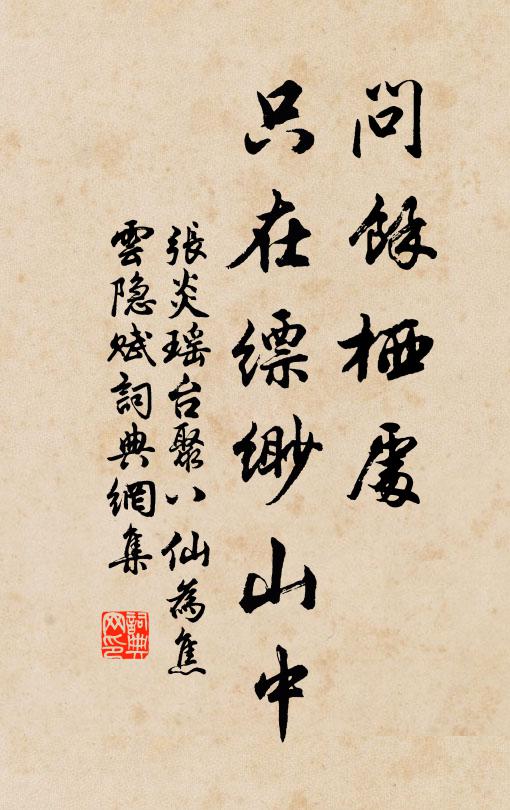 問餘栖處
只在缥缈山中
張炎瑶台聚八仙為焦
雲隐赋詞典網集
詞典
网印